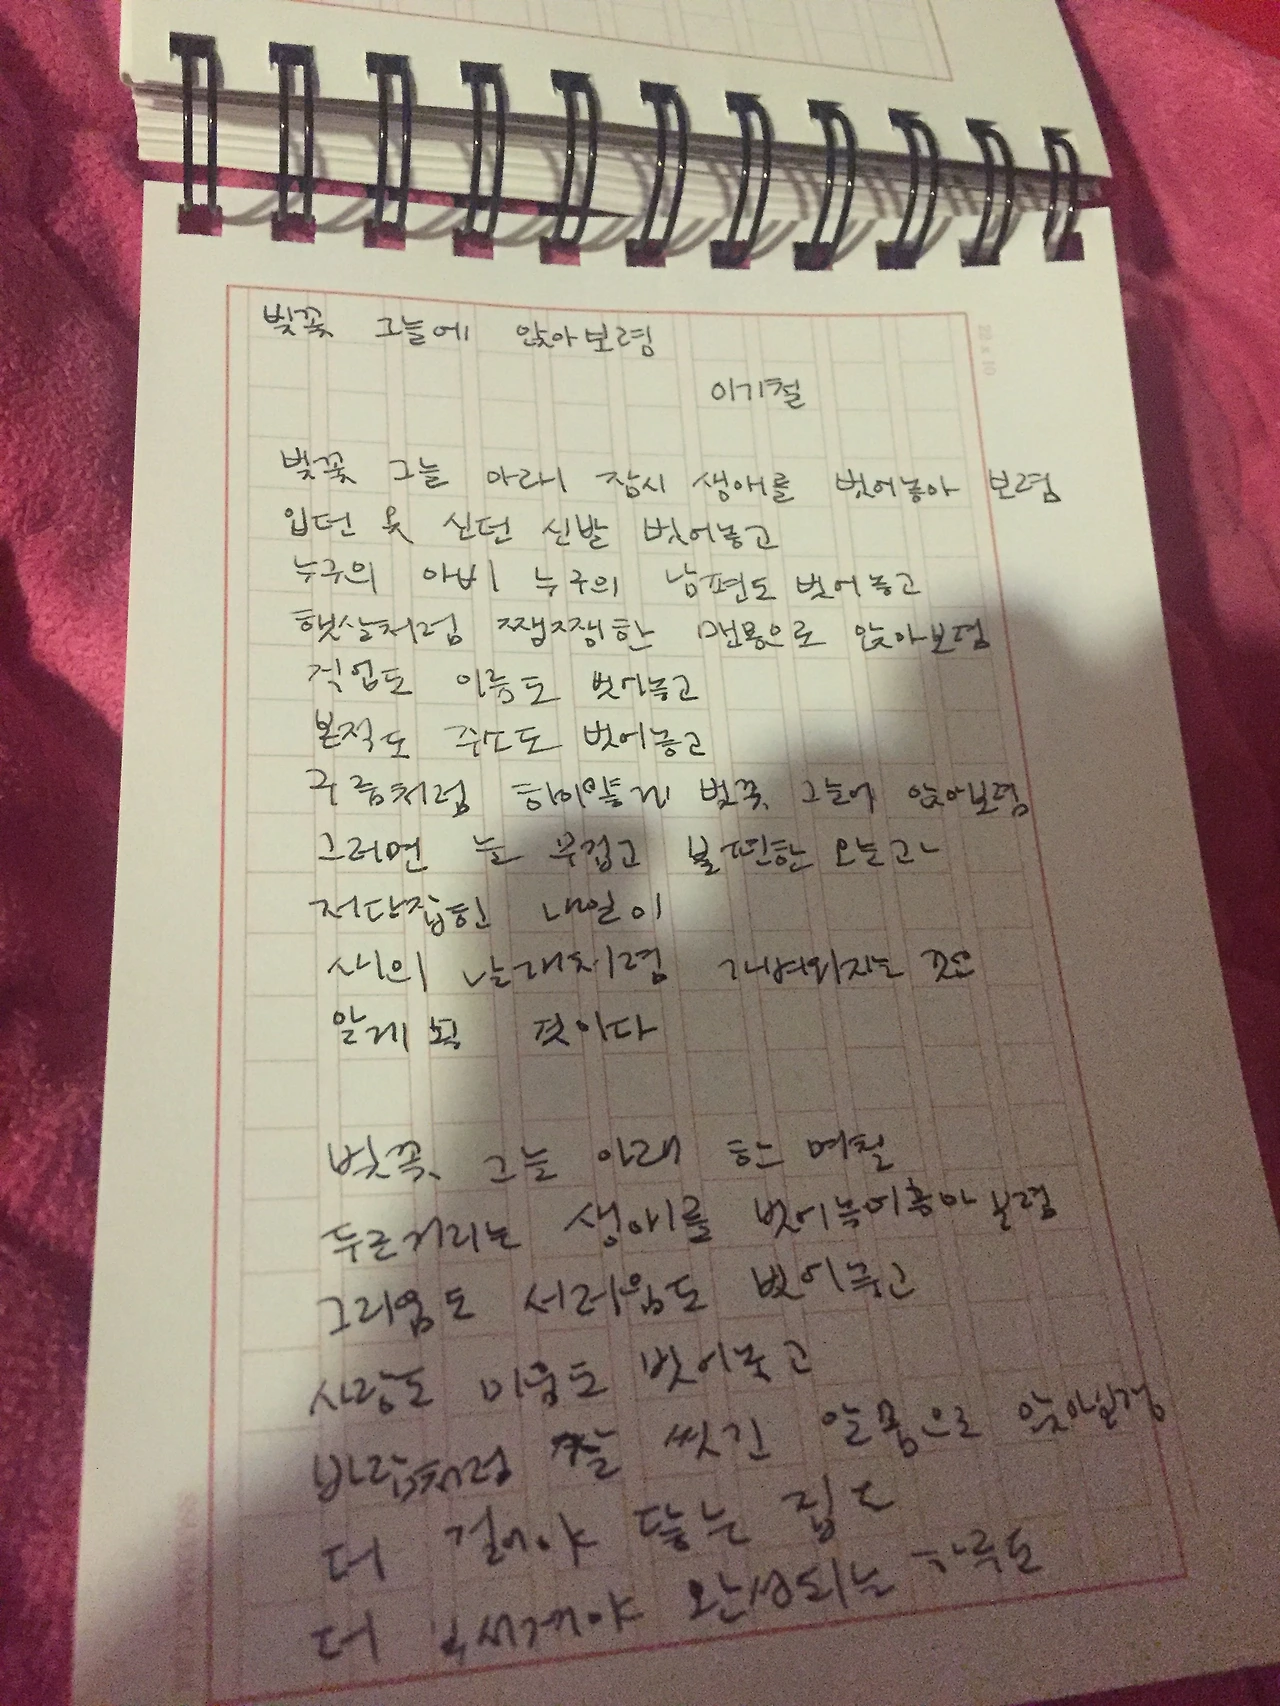 벚꽃 그늘에 앉아보렴
이기철
벚꽃 그늘 아래 잠시 생애를 벗어놓아 보렴
입던 옷 신던 신발 벗어놓고
누구의 아비 누구의 남편도 벗어놓고
햇살처럼 쨈쨍한 맨몸으로 앉아보렴
직업도 이름도 벗어놓고
본적도 주소도 벗어놓고
구름처럼 하이얗게 벚꽃 그늘에 앉아보렴
그러면 늘 무겁고 불편한 오늘과
저당잡힌 내일이
새의 날개처럼 가벼워지는 것을
알게 될 것이다
벚꽃 그늘 아래 한 며칠
두근거리는 생애를 벗어놓아 보렴
그리움도 서러움도 벗어놓고
사랑도 미움도 벗어놓고
바람처럼 잘 씻긴 알몸으로 앉아보렴
더 걸어야 닿는 집도
더 부서져야 완성되는 하루도
22 x 10